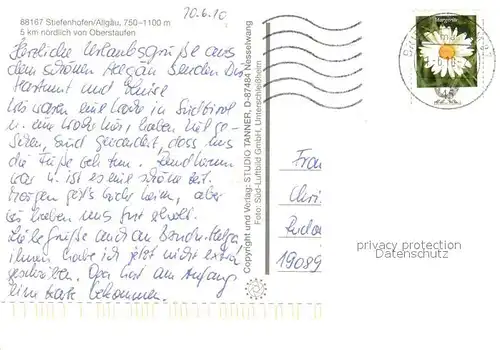 20.6.10
88167 Stiefenhofen/Allgäu, 750-1100 m
5 km nördlich von Oberstaufen
Herzliche Urlaubsgrüße aus
dem schönen Allgäu senden Dir
Hartmut und Luise
Wir waren eine Woche in Südtirol
u. eine Woche hier, haben viel ge-
sehen, sind gewandert, dass uns
die Füße weh tun.
war u. ist es eine schöne Zeit.
Morgen geht's wieder heim, aber
wir haben uns gut erholt.
Liebe Grüße auch an Helga
ihnen habe ich jetzt nicht extra
geschrieben. Opa hat am Anfang
eine Karte bekommen.
Copyright und Verlag: STUDIO TANNER, D-87484 Nesselwang
Foto: Süd-Luftbild GmbH, Unterschleißheim
Margerite
45
Frau
Chri
19089
privacy protection
Datenschutz